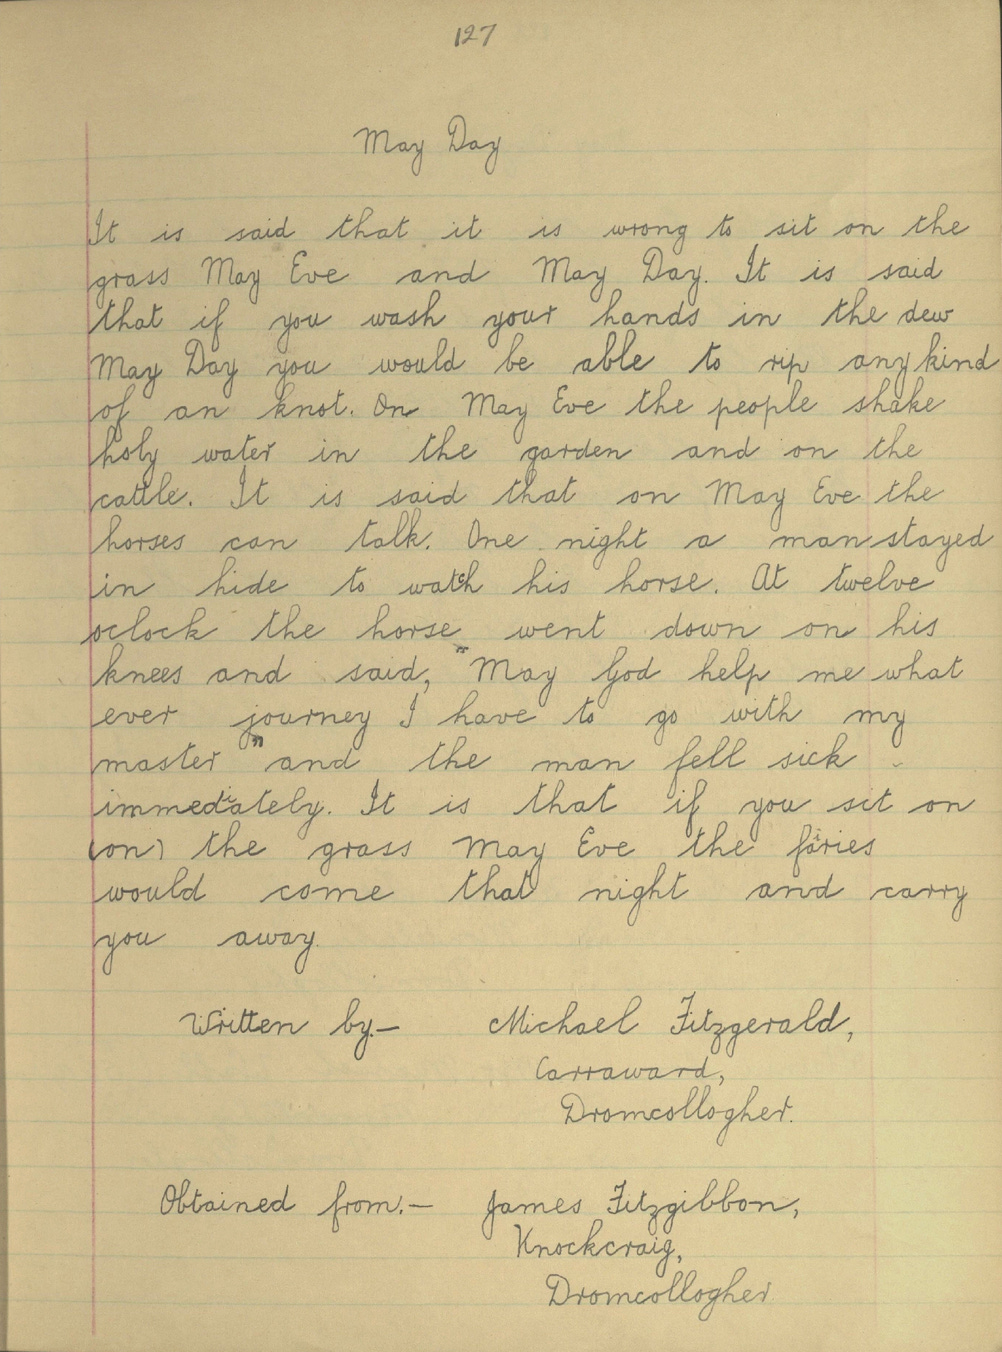 127
May Day
It is said that it is wrong to sit on the
grass May Eve and May Day. It is said
that if you wash your hands in the dew
May Day you would be able to rip any kind
of an knot. On May Eve the people shake
holy water in the garden and on the
cattle. It is said that on May Eve the
horses can talk. One night a man stayed
in hide to watch his horse. At twelve
oclock the horse went down on his
knees and said, "May God help me what
ever journey I have to go with my
master" and the man fell sick
immediately. It is that if you sit on
(on) the grass May Eve the fairies
would come that night and carry
you away.
Written by:- Michael Fitzgerald,
Carraward,
Dromcollogher.
Obtained from:- James Fitzgibbon,
Knockcraig,
Dromcollogher